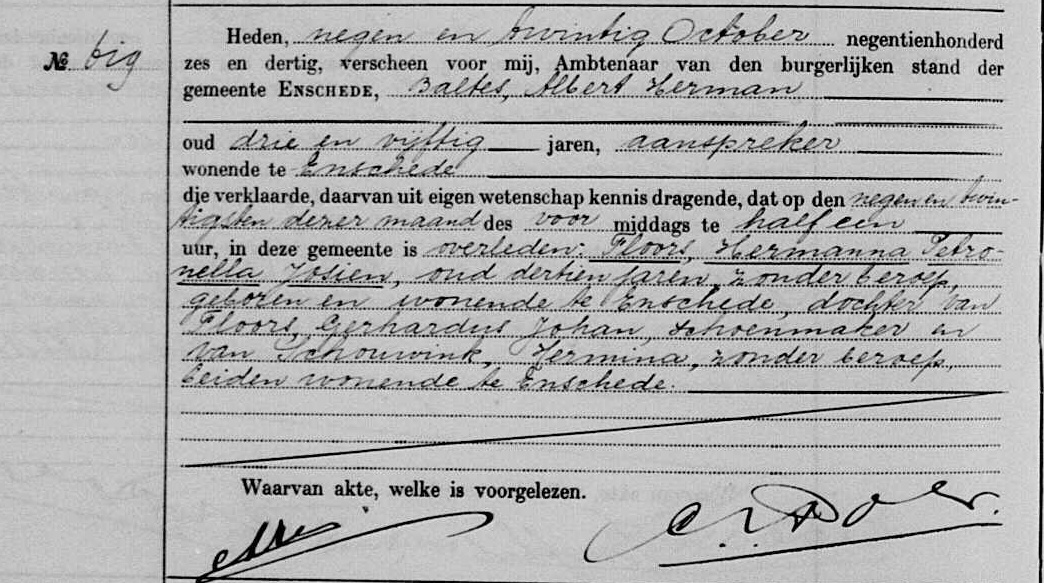 Nº 619
Heden, negen en twintig October negentienhonderd
zes en dertig, verscheen voor mij, Ambtenaar van den burgerlijken stand der
gemeente ENSCHEDE, Baltes, Albert Herman
oud drie en vijftig jaren, aanspreker
wonende te Enschede
die verklaarde, daarvan uit eigen wetenschap kennis dragende, dat op den negen en twin-
tigsten dezer maand des voor middags te half een
uur, in deze gemeente is overleden: Floors, Hermanna Petro-
nella Josien, oud dertien jaren, zonder beroep,
geboren en wonende te Enschede, dochter van
Floors, Gerhardus Johan, schoenmaker en
van Schouwink, Hermina, zonder beroep,
beiden wonende te Enschede.
Waarvan akte, welke is voorgelezen.